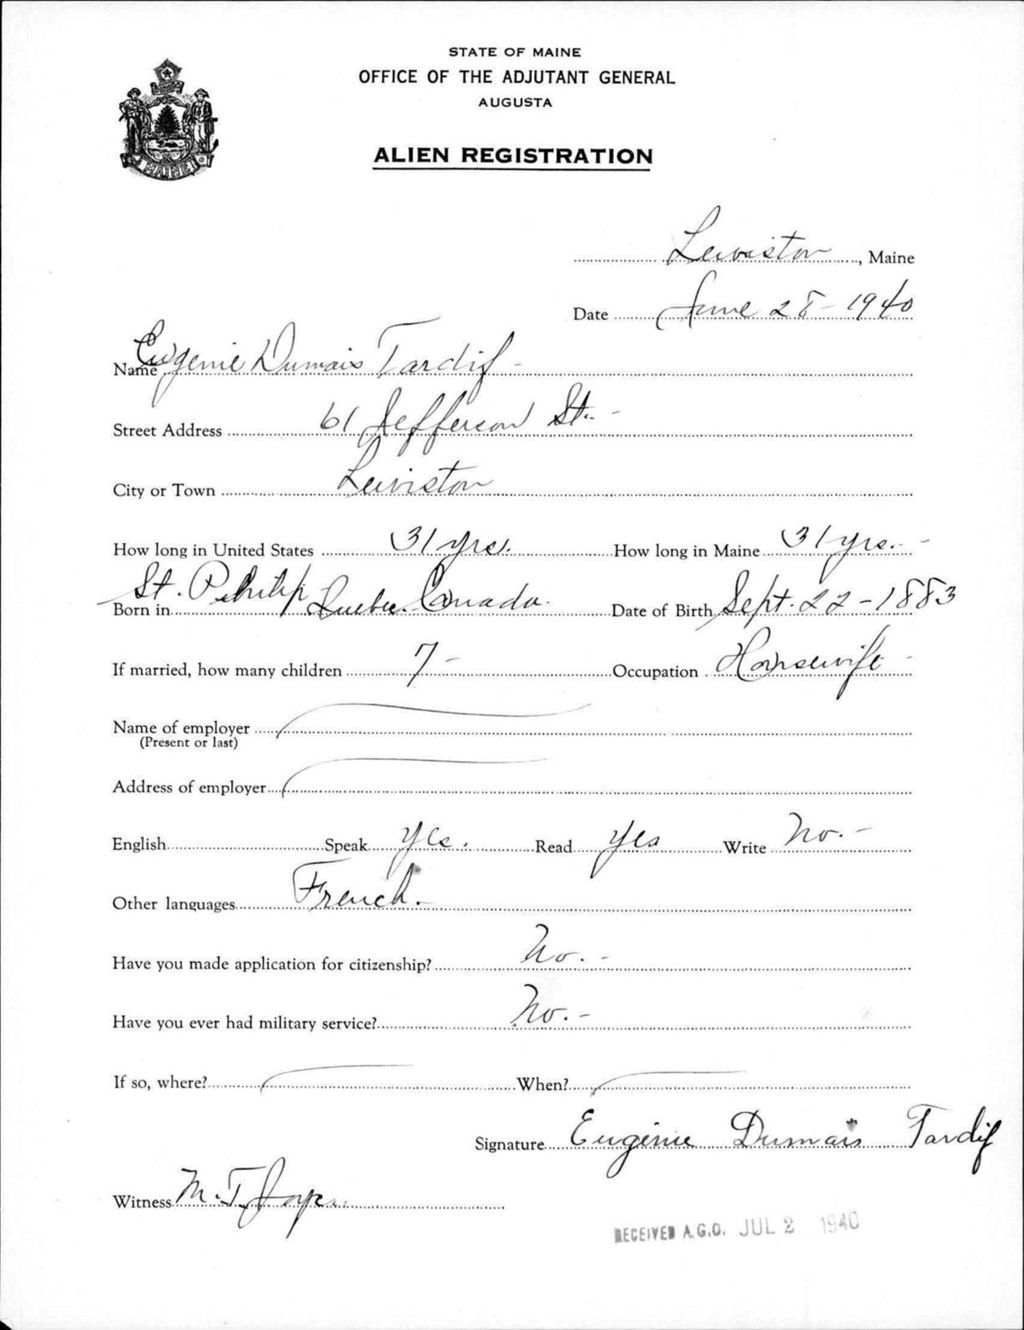 STATE OF MAINE
OFFICE OF THE ADJUTANT GENERAL
AUGUSTA
ALIEN REGISTRATION
MAINE
Lewiston, Maine
Date June 28 - 1940
Name Eugenie Dumais Tardif -
Street Address 61 Jefferson St. -
City or Town Lewiston
How long in United States 31 yrs. How long in Maine 31 yrs. -
Born in St. Philip Quebec Canada. Date of Birth Sept. 22 - 1883
If married, how many children 7 - Occupation Housewife -
Name of employer
(Present or last)
Address of employer
English Speak Yes. Read Yes Write No. -
Other languages French. -
Have you made application for citizenship? No. -
Have you ever had military service? No. -
If so, where? When?
Signature Eugénie Dumais Tardif
Witness M. T.
RECEIVED A.G.O. JUL 2 1940